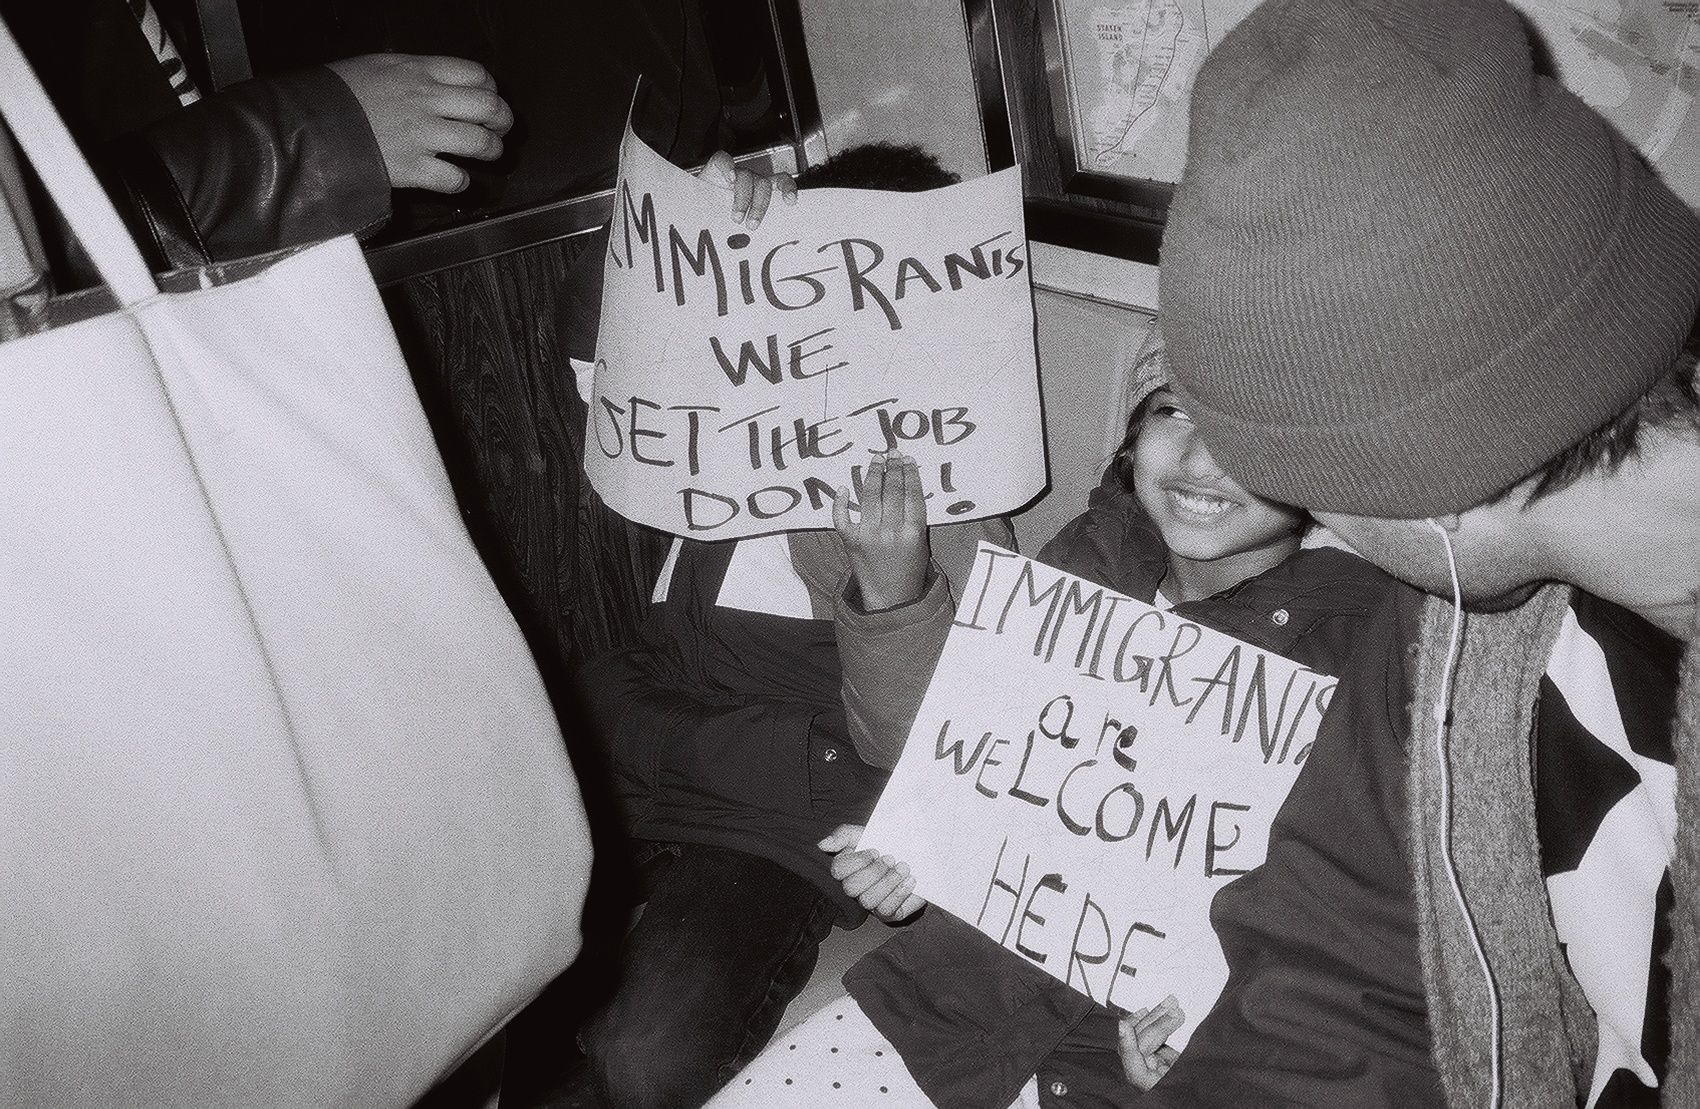 STATEN
ISLAND
IMMiGRANTS
WE
GET THE JOB
DONE!
IMMIGRANTS
are
WELCOME
HERE